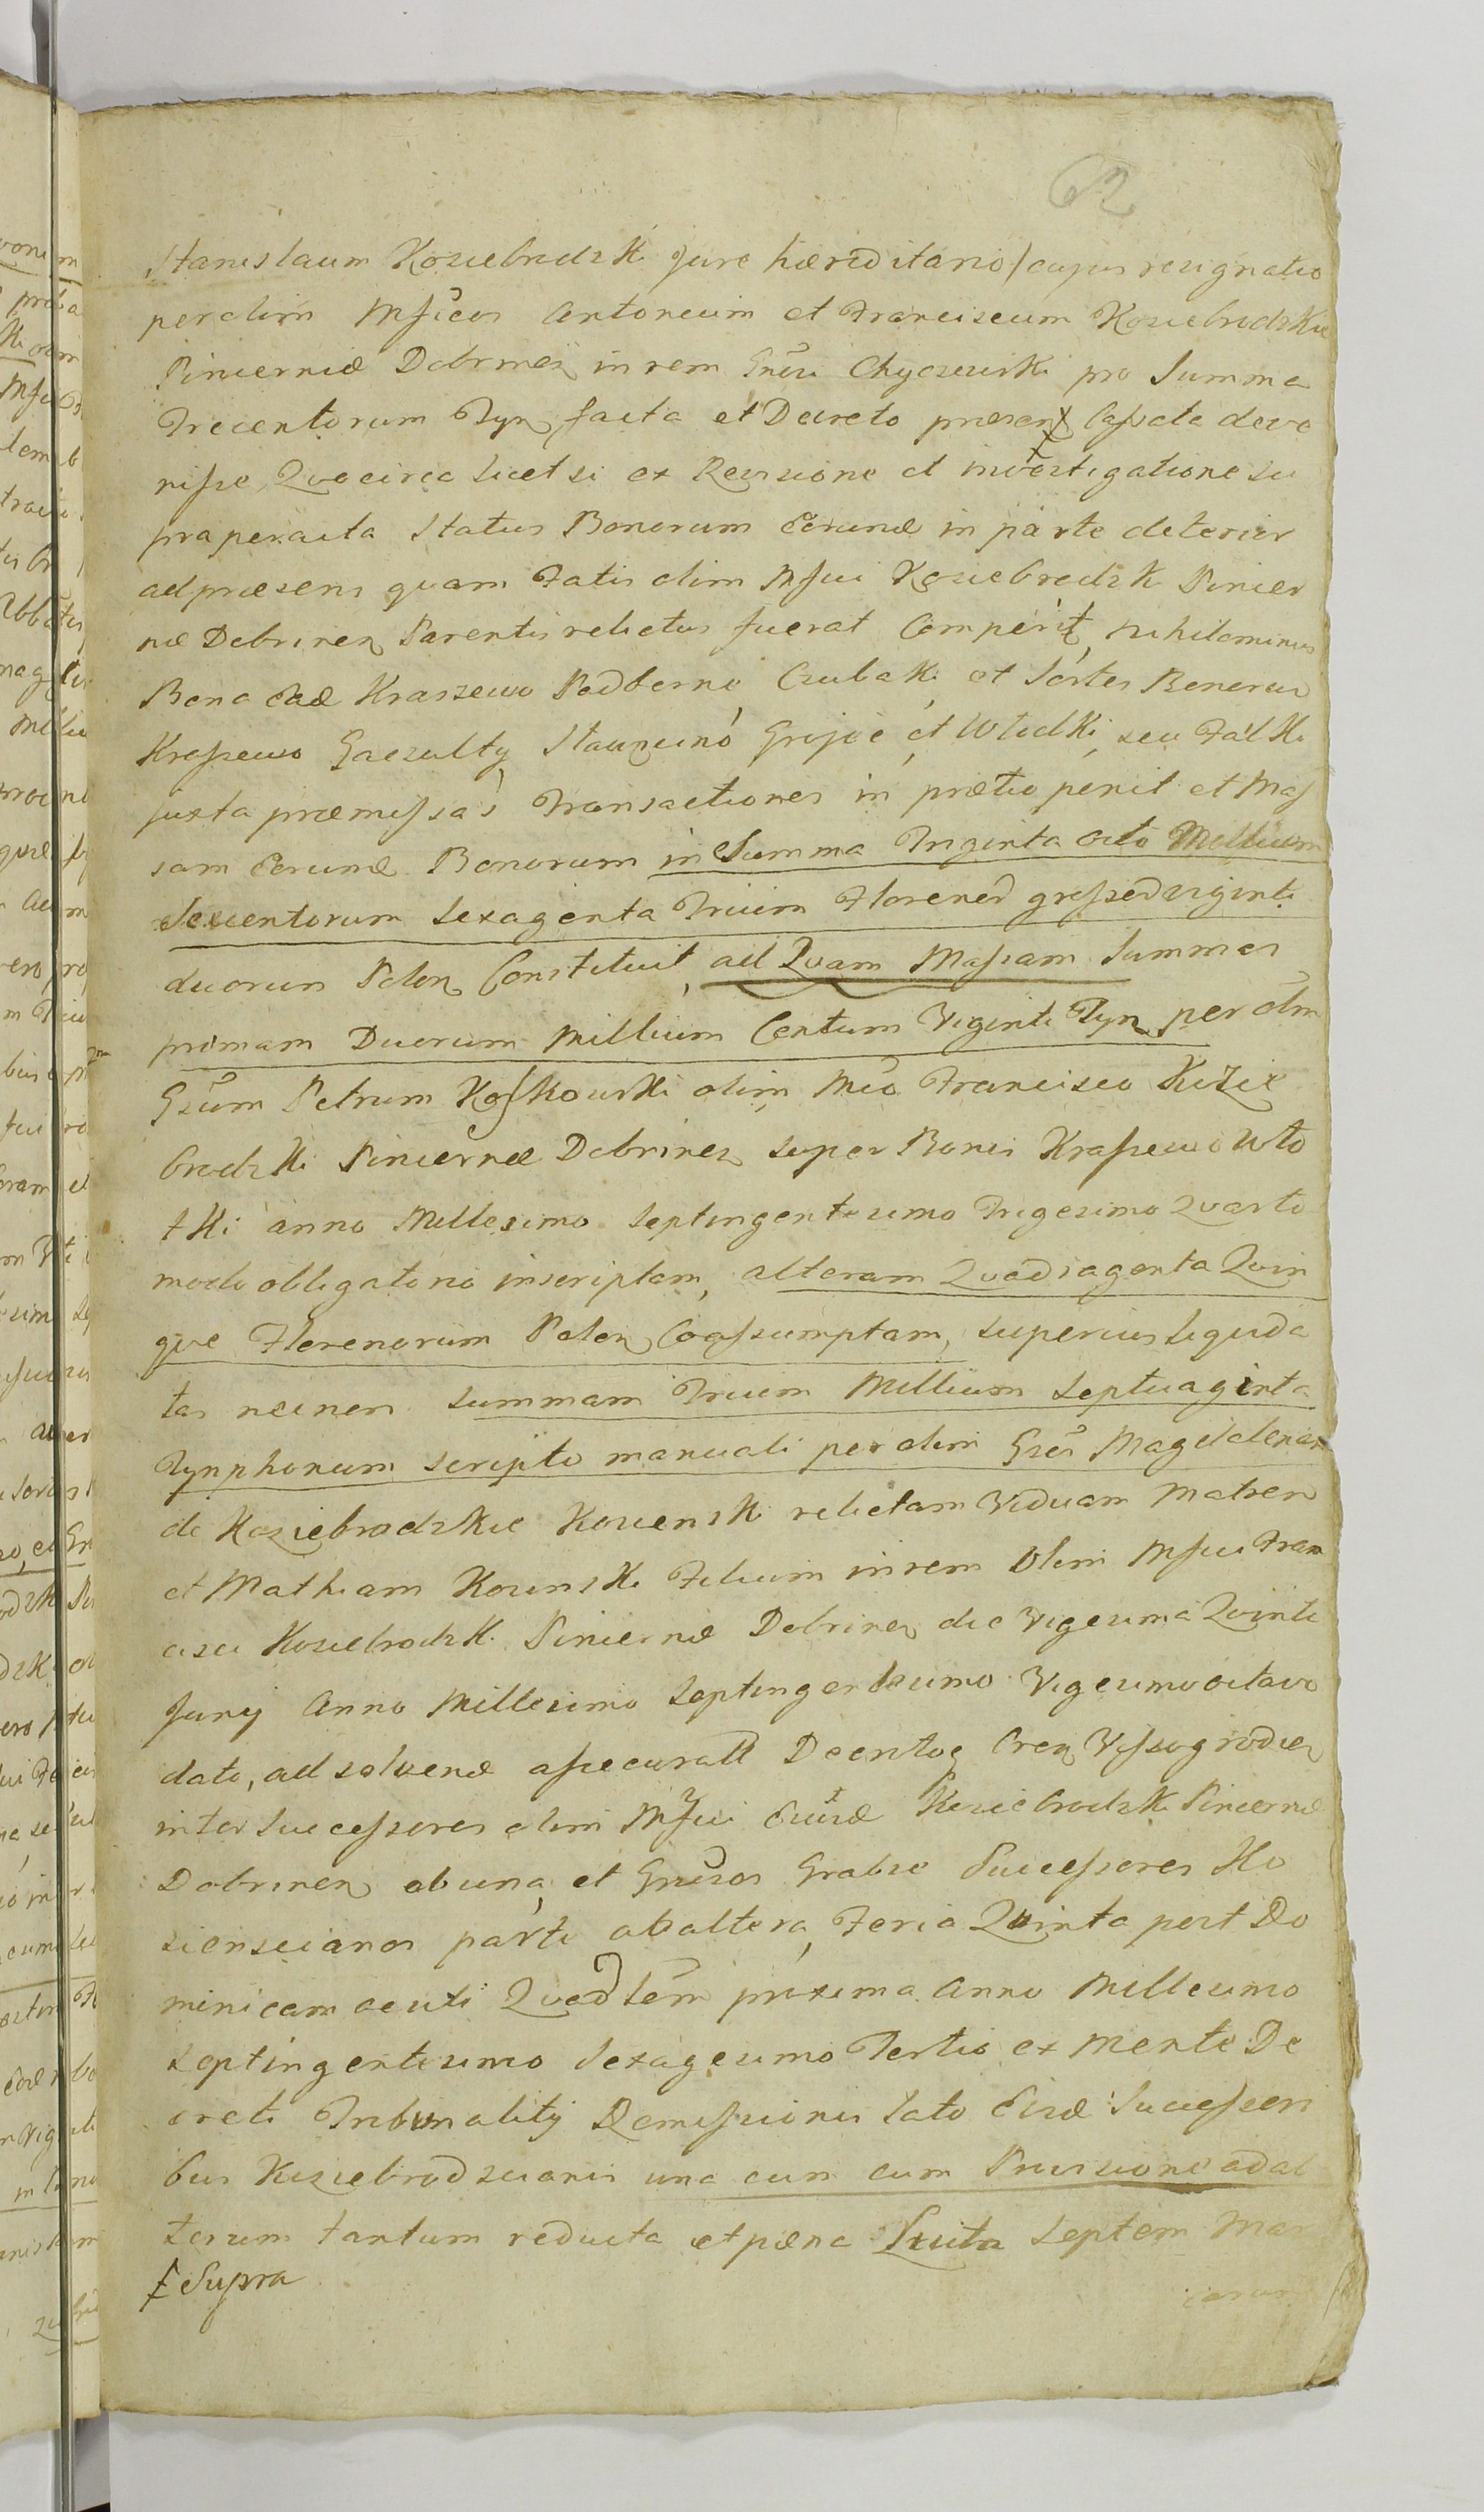 Stanislaum Koziebrodzki jure hæreditario/cujus resignatio
per olim Mficos Antonium et Franciscum Koziebrodzkie
Pincernid Dobrinen in rem Gnosi Chyczewski pro Summa
Trecentorum Tyn facta et Decreto præsen Cassata deve
nisse, Qvocirca licet si ex Revisione et investigatione su
pra peracta Status Bonorum eorund in parte deterior
ad præsens quam Fatis olim Mfici Koziebrodzk Pincer
næ Dobrinen Parentis relictus fuerat Comperit, nihilominus
Bona ead Kraszewo Podborne, Czubaki, et Sortes Bonorum
Krassewo Gaczulty, Stawnino Grojce, et Wlodki, seu Falki
juxta præmissas Transactiones in prætio ponit et Mas
sam eorund Bonorum in Summa Triginta octo Millium
Sexcentorum Sexaginta Trium Florened grossed viginti
duorum Polon Constituit, ad Qvam Massam Summas
primam Duorum Millium Centum Viginti Tyn per olm
Gsum Petrum Koskowski olim Mco Francisco Kozie
brodzki Pincernæ Dobrinen super Bonis Krassewo Wlo
tki anno Millesimo Septingentesimo Trigesimo Qvarto
modo obligatorio inscriptam, alteram Qvadraginta Qvin
qve Florenorum Polon Coassumptam, superius liqvida
tas necnon summam Trium Millium Septuaginta
Tynphonum scripto manuali per olim Gsos Magdalenam
de Koziebrodzkie Kosienski relictam Viduam Matrem
et Mathiam Kosinski Filium in rem Olim Mfici Fran
cisci Koziebrodzk Pincernæ Dobrinen die Vigesima Qvinta
Junij Anno Millesimo Septingentesimo Vigesimo octavo
dato, ad solvend assecuratt Decretoq Cren Vyssogrodien
inter Successores olim Mfici Eiusd Koziebrodzk Pincernæ
Dobrinen ab una, et Gnosos Grabie Successores Ko
sienscianos parte ab altera, Feria Qvinta post Do
minicam oculi Qvadlem proxima Anno Millesimo
Septingentesimo Sexagesimo Tertio ex mente De
creti Tribunalitij Remissionis lato Eisd Successori
bus Koziebrodscianis una cum cum Provisione ad al
terum tantum reducta et pæna Luita Septem Mar
Ŧ Supra
carum